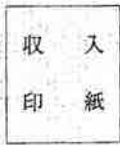 収入
印紙